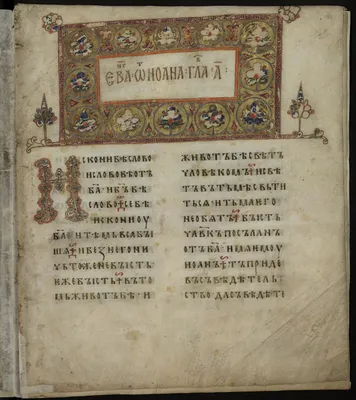 ЕВАⷩ҇ГѠⷮИОАНА·ГЛАⷡ҇·А҃·
ИСКОНИБѢСЛОВО
ИСЛОВОБѢОТЪ
Б҃АИБ҃ЪБѢ
СЛОВО·СЕБѢ
ИСКОНИОУ
Б҃АИТѢМЬВСАБЫ
ШѦ·ИБЕЖНЕГОНИ
ЧЬТОЖЕНЕБЫСТЬ
ѤЖЕБЫСТЬ·ВЪТО
МЬЖИВОТЪБѢ·И
ЖИВОТЪБѢСВѢТЪ
ЧЛОВѢКОМЪ·ИСВѢ
ТЪВЪТЬМѢСВЬТИ
ТЬСѦ·ИТЬМАѤГО
НЕОБѦТЪ·БЫСТЬ
ЧЛ҃ВКЪПОСЪЛАНЪ
ОТЪБ҃А·ИМѦѤМОУ
ИОАНЪ·ТЪПРИДЕ
ВЪСЪВѢДѢТЕЛЬ
СТВО·ДАСЪВѢДѢТЕ